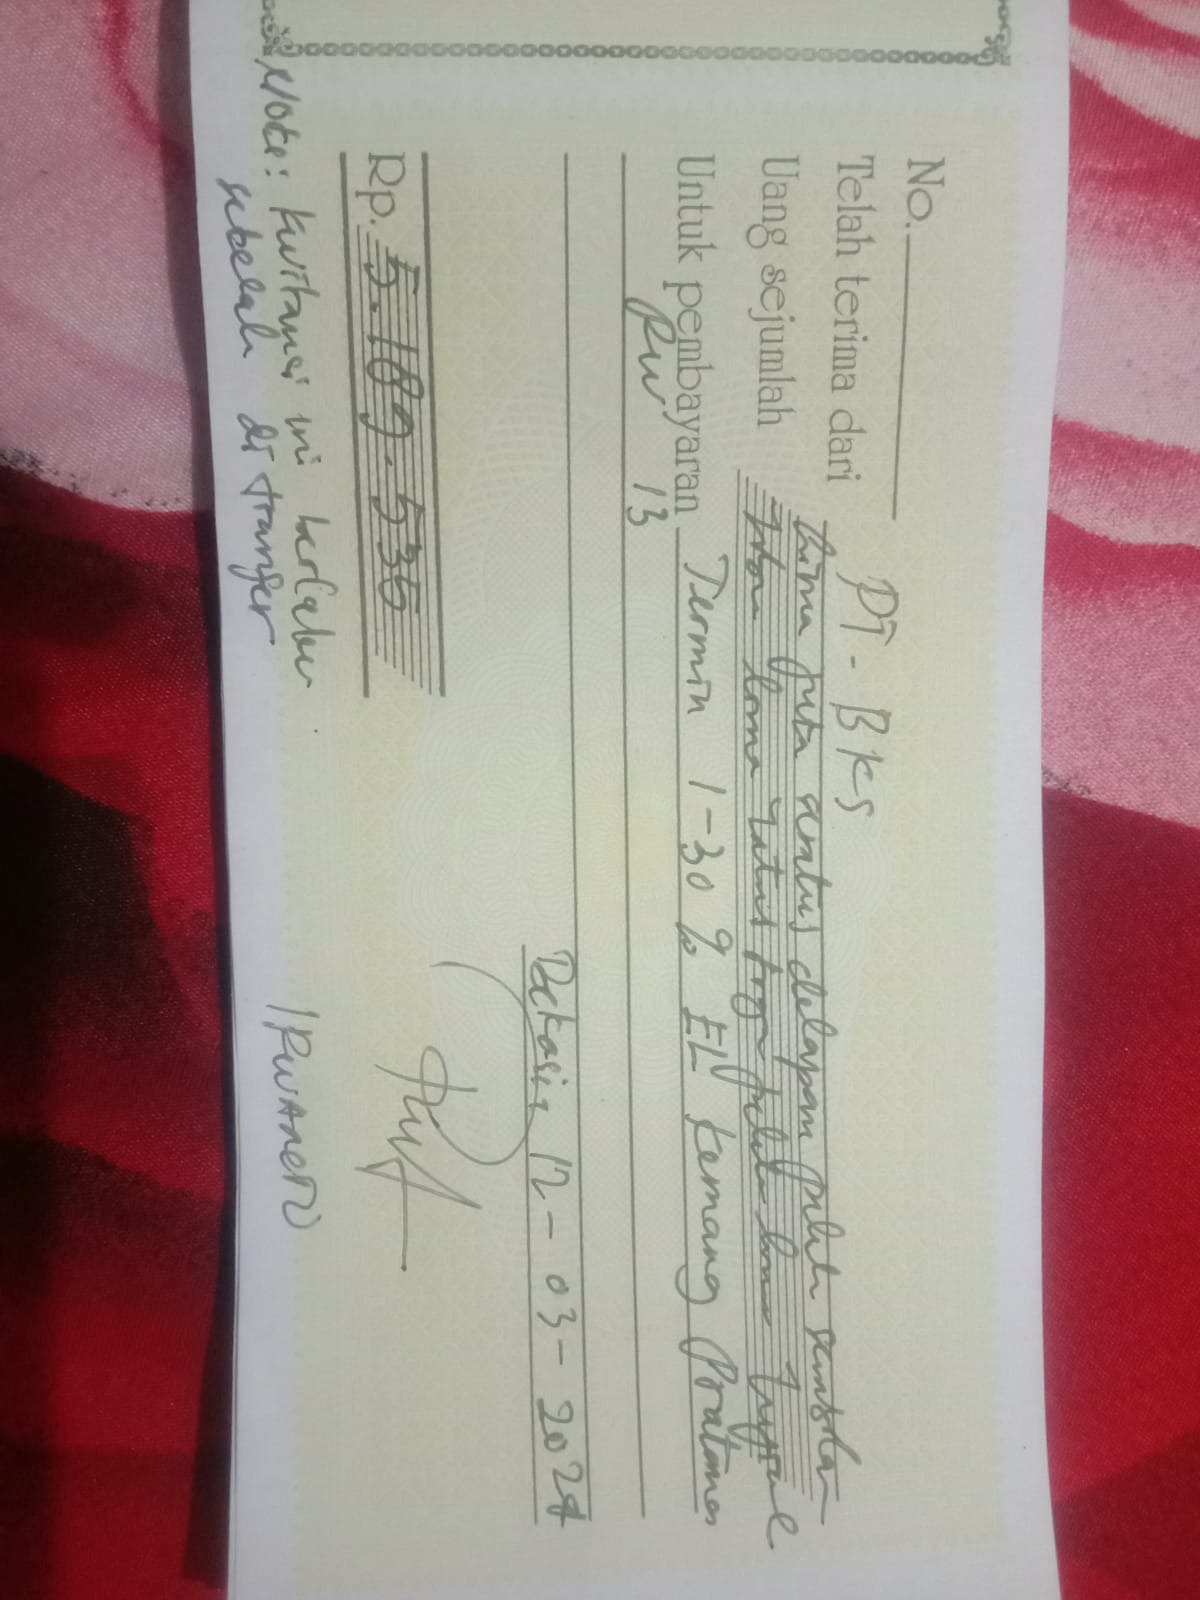 No.
Telah terima dari PT. BKS
Uang sejumlah Lima juta seratus delapan puluh sembilan
ribu lima ratus tiga puluh lima rupiah
Untuk pembayaran Termin 1-30% EL Kemang Pratama
RW 13
Bekasi, 12-03-2024
Rp. 5.189.535
Note: Kwitansi ini berlaku
setelah di transfer